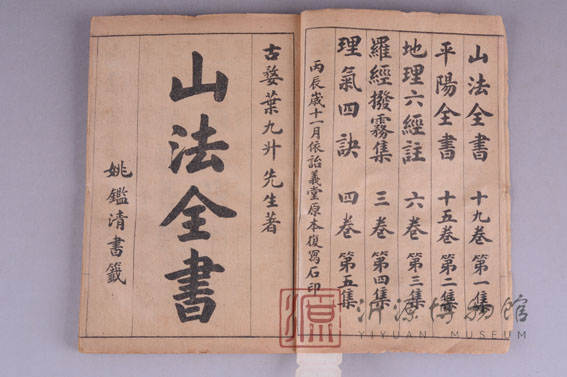 山法全書 十九卷 第一集
平陽全書 十五卷 第二集
地理六經註 六卷 第三集
羅經撥霧集 三卷 第四集
理氣四訣 四卷 第五集
丙辰歲十一月依詒義堂原本復寫石印
古婺葉九升先生著
山法全書
姚鑑清書籤
源
沂源博物館
YIYUAN MUSEUM